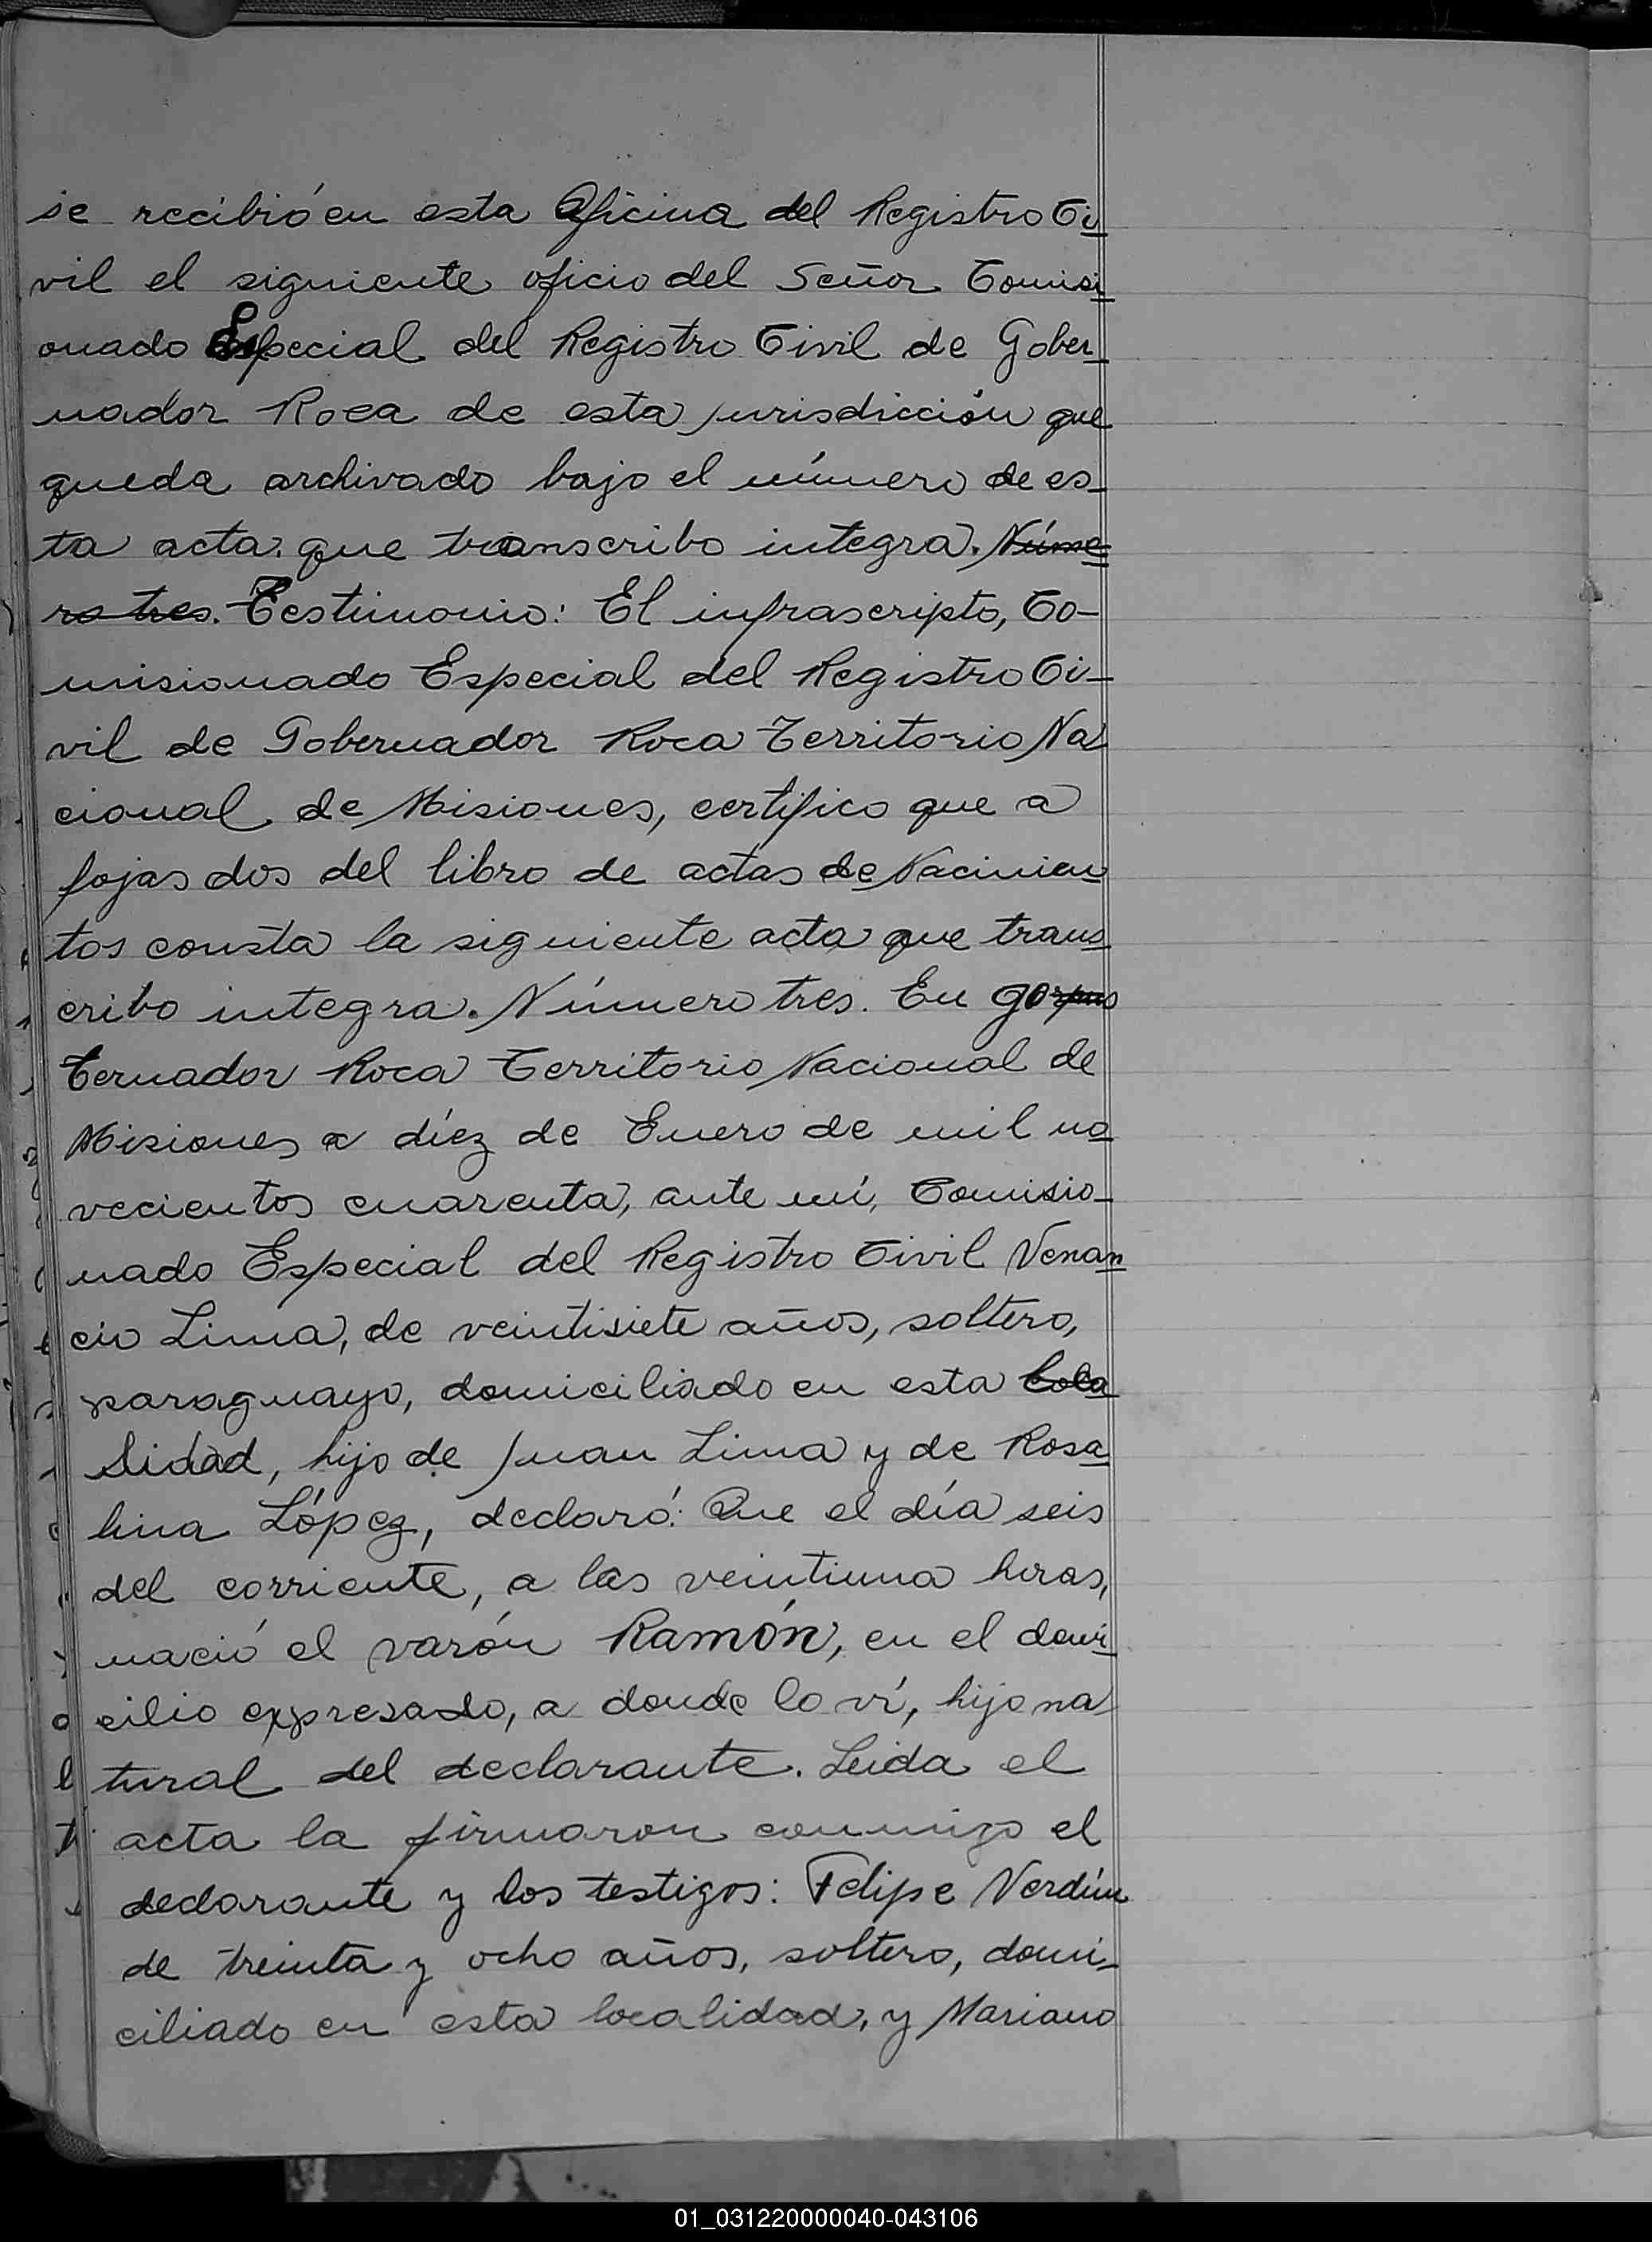 se recibió en esta Oficina del Registro Ci
vil el siguiente oficio del Señor Comisi
onado Especial del Registro Civil de Gober
nador Roca de esta jurisdicción que
queda archivado bajo el número de es
ta acta que transcribo integra. Núme
ro tres. Testimonio: El infrascripto, Co-
misionado Especial del Registro Ci-
vil de Gobernador Roca Territorio Na
cional de Misiones, certifico que a
fojas dos del libro de actas de Nacimien
tos consta la siguiente acta que trans
cribo integra. Número tres. En Go
bernador Roca Territorio Nacional de
Misiones a diez de Enero de mil no
vecientos cuarenta, ante mí, Comisio-
nado Especial del Registro Civil Venan
cio Lima, de veintisiete años, soltero,
paraguayo, domiciliado en esta loca
lidad, hijo de Juan Lima y de Rosa
lina López, declaró: Que el día seis
del corriente, a las veintiuna horas,
nació el varón Ramón, en el domi
cilio expresado, a donde lo ví, hijo na
tural del declarante. Leida el
acta la firmaron conmigo el
declarante y los testigos: Felipe Verdún
de treinta y ocho años, soltero, domi-
ciliado en esta localidad, y Mariano
01_031220000040-043106